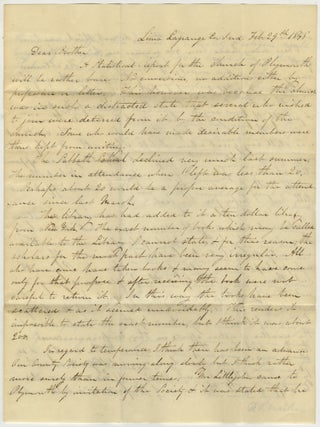 Lima Lagrange Co Ind Feb 29th 184
Dear Brother
A Statistical report for the Church of Plymouth
will be rather bare. No conversions no additions either by
profession or letter. This however was because the church
was in such a distracted state that several who wished
to join were deterred from it by the condition of the
church. Some who would have made desirable members were
thus kept from uniting.
The Sabbath School declined very much last summer,
the number in attendance when I left was less than 20.
Perhaps about 20 would be a proper average for the attend
ance since last March.
The library has had added to it a ten dollar library
from New York. The exact number of books which may be called
available to the Library I cannot state, & for this reason, the
scholars for the most part have been very irregular. All
who have come have taken books & many seem to have come
only for that purpose & after receiving the book were not
sought to return it. In this way the books have been
scattered & as it seemed unavoidably. This renders it
impossible to state the exact number, but I think it was about
200.
In regard to temperance I think there has been an advance
Our County Society was moving along slowly but I think rather
more surely than in former times. Mr Littlejohn came to
Plymouth by invitation of the Society & it was stated that he